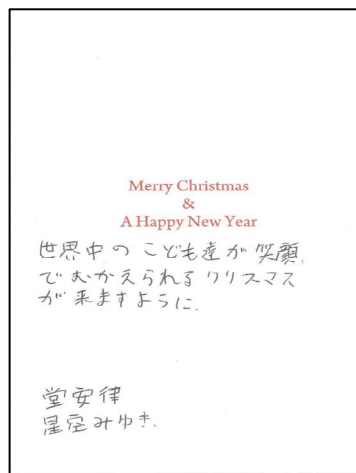 Merry Christmas
&
A Happy New Year
世界中のこども達が笑顔
でむかえられるクリスマス
が来ますように.
堂安律
星空みゆき.